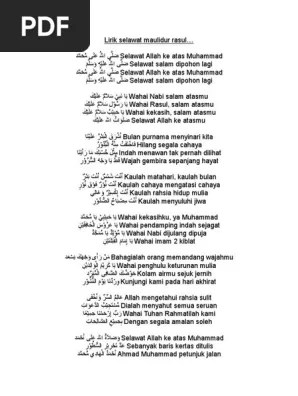 PDF
Lirik selawat maulidur rasul…
صَلَّى اللهُ عَلَى مُحَمَّد Selawat Allah ke atas Muhammad
صَلَّى اللهُ عَلَيْهِ وَسَلَّم Selawat salam dipohon lagi
صَلَّى اللهُ عَلَى مُحَمَّد Selawat Allah ke atas Muhammad
صَلَّى اللهُ عَلَيْهِ وَسَلَّم Selawat salam dipohon lagi
يَا نَبِيْ سَلَامٌ عَلَيْكَ Wahai Nabi salam atasmu
يَا رَسُوْل سَلَامٌ عَلَيْكَ Wahai Rasul, salam atasmu
يَا حَبِيْبُ سَلَامٌ عَلَيْكَ Wahai kekasih, salam atasmu
صَلَوَاتُ اللهِ عَلَيْكَ Selawat Allah ke atasmu
أَشْرَقَ الْبَدْرُ عَلَيْنَا Bulan purnama menyinari kita
فَاخْتَفَتْ مِنْهُ الْبُدُوْرُ Hilang segala cahaya
مِثْلَ حُسْنِكَ مَا رَأَيْنَا Indah menawan tak pernah dilihat
قَطُّ يَا وَجْهَ السُّرُوْرِ Wajah gembira sepanjang hayat
أَنْتَ شَمْسٌ أَنْتَ بَدْرٌ Kaulah matahari, kaulah bulan
أَنْتَ نُوْرٌ فَوْقَ نُوْرٍ Kaulah cahaya mengatasi cahaya
أَنْتَ إِكْسِيْرٌ وَغَالِي Kaulah rahsia hidup mulia
أَنْتَ مِصْبَاحُ الصُّدُوْرِ Kaulah menyuluhi jiwa
يَا حَبِيْبِيْ يَا مُحَمَّد Wahai kekasihku, ya Muhammad
يَا عَرُوْسَ الْخَافِقَيْنِ Wahai pendamping indah sejagat
يَا مُؤَيَّدُ يَا مُمَجَّدُ Wahai Nabi dijulang dipuja
يَا إِمَامَ الْقِبْلَتَيْنِ Wahai imam 2 kiblat
مَنْ رَأَى وَجْهَكَ يَسْعَد Bahagialah orang memandang wajahmu
يَا كَرِيْمَ الْوَالِدَيْنِ Wahai penghulu keturunan mulia
حَوْضُكَ الصَّافِى الْمُبَرَّد Kolam airmu sejuk jernih
وِرْدُنَا يَوْمَ النُّشُوْرِ Kunjungi kami pada hari akhirat
عَالِمُ السِّرِّ وَأَخْفَى Allah mengetahui rahsia sulit
مُسْتَجِيْبُ الدَّعَوَاتِ Dialah menyahut semua seruan
رَبِّ إِرْحَمْنَا جَمِيْعًا Wahai Tuhan Rahmatilah kami
بِجَمِيْعِ الصَّالِحَاتِ Dengan segala amalan soleh
وَصَلَاةُ اللهِ عَلَى أَحْمَد Selawat Allah ke atas Muhammad
عَدَّ تَحْرِيْرِ السُّطُوْرِ Sebanyak baris kertas ditulis
أَحْمَدُ الْهَادِيْ مُحَمَّد Ahmad Muhammad petunjuk jalan